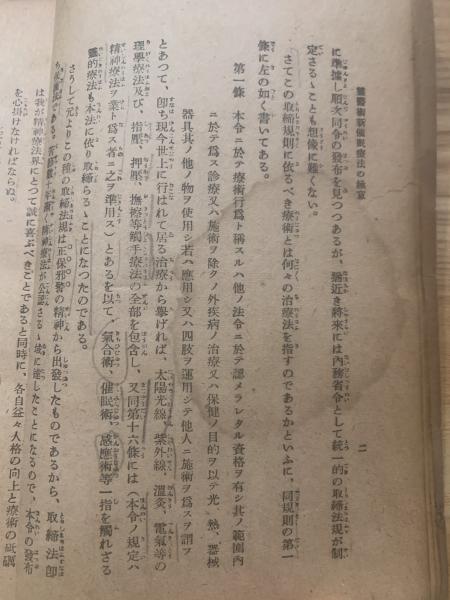 靈醫術新催眠療法の極意
二
に準據し順次同令の發布を見つつあるが、最近き將來には內務省令として統一的の取締法規が制
定さるゝことも想像に難くない。
さてこの取締規則に依るべき療術とは何々の治療法を指すのであるかといふに、同規則の第一
條に左の如く書いてある。
第一條 本令ニ於テ療術行爲ト稱スルハ他ノ法令ニ於テ認メラレタル資格ヲ有シ其ノ範圍內
ニ於テ爲ス診療又ハ施術ヲ除クノ外疾病ノ治療又ハ保健ノ目的ヲ以テ光、熱、器械
器具其ノ他ノ物ヲ使用シ若ハ應用シ又ハ四肢ヲ運用シテ他人ニ施術ヲ爲スヲ謂フ
とあつて、卽ち現今世上に行はれて居る治療から擧げれば、太陽光線、紫外線、溫灸、電氣等の
理學療法及び、指壓、押壓、撫擦等觸手療法の全部を包含し、又同第十六條には（本令ノ規定ハ
精神療法ヲ業トム爲ス者ニ之ヲ準用ス）とあるを以て、氣合術、催眠術、感應術等一指を觸れざる
靈的療法も本法に依り取締らるゝことになつたのである。
さうして元よりこの種の取締法規は正保邪罰の精神から出發したものであるから、取締法卽
ち保護法である。
精神療法が公認さるゝ域に達したことになるので、本令の發布
は我が精神療法界にとつて誠に喜ぶべきことであると同時に、各自益々人格の向上と療術の砥礪
を心掛けなければならぬ。